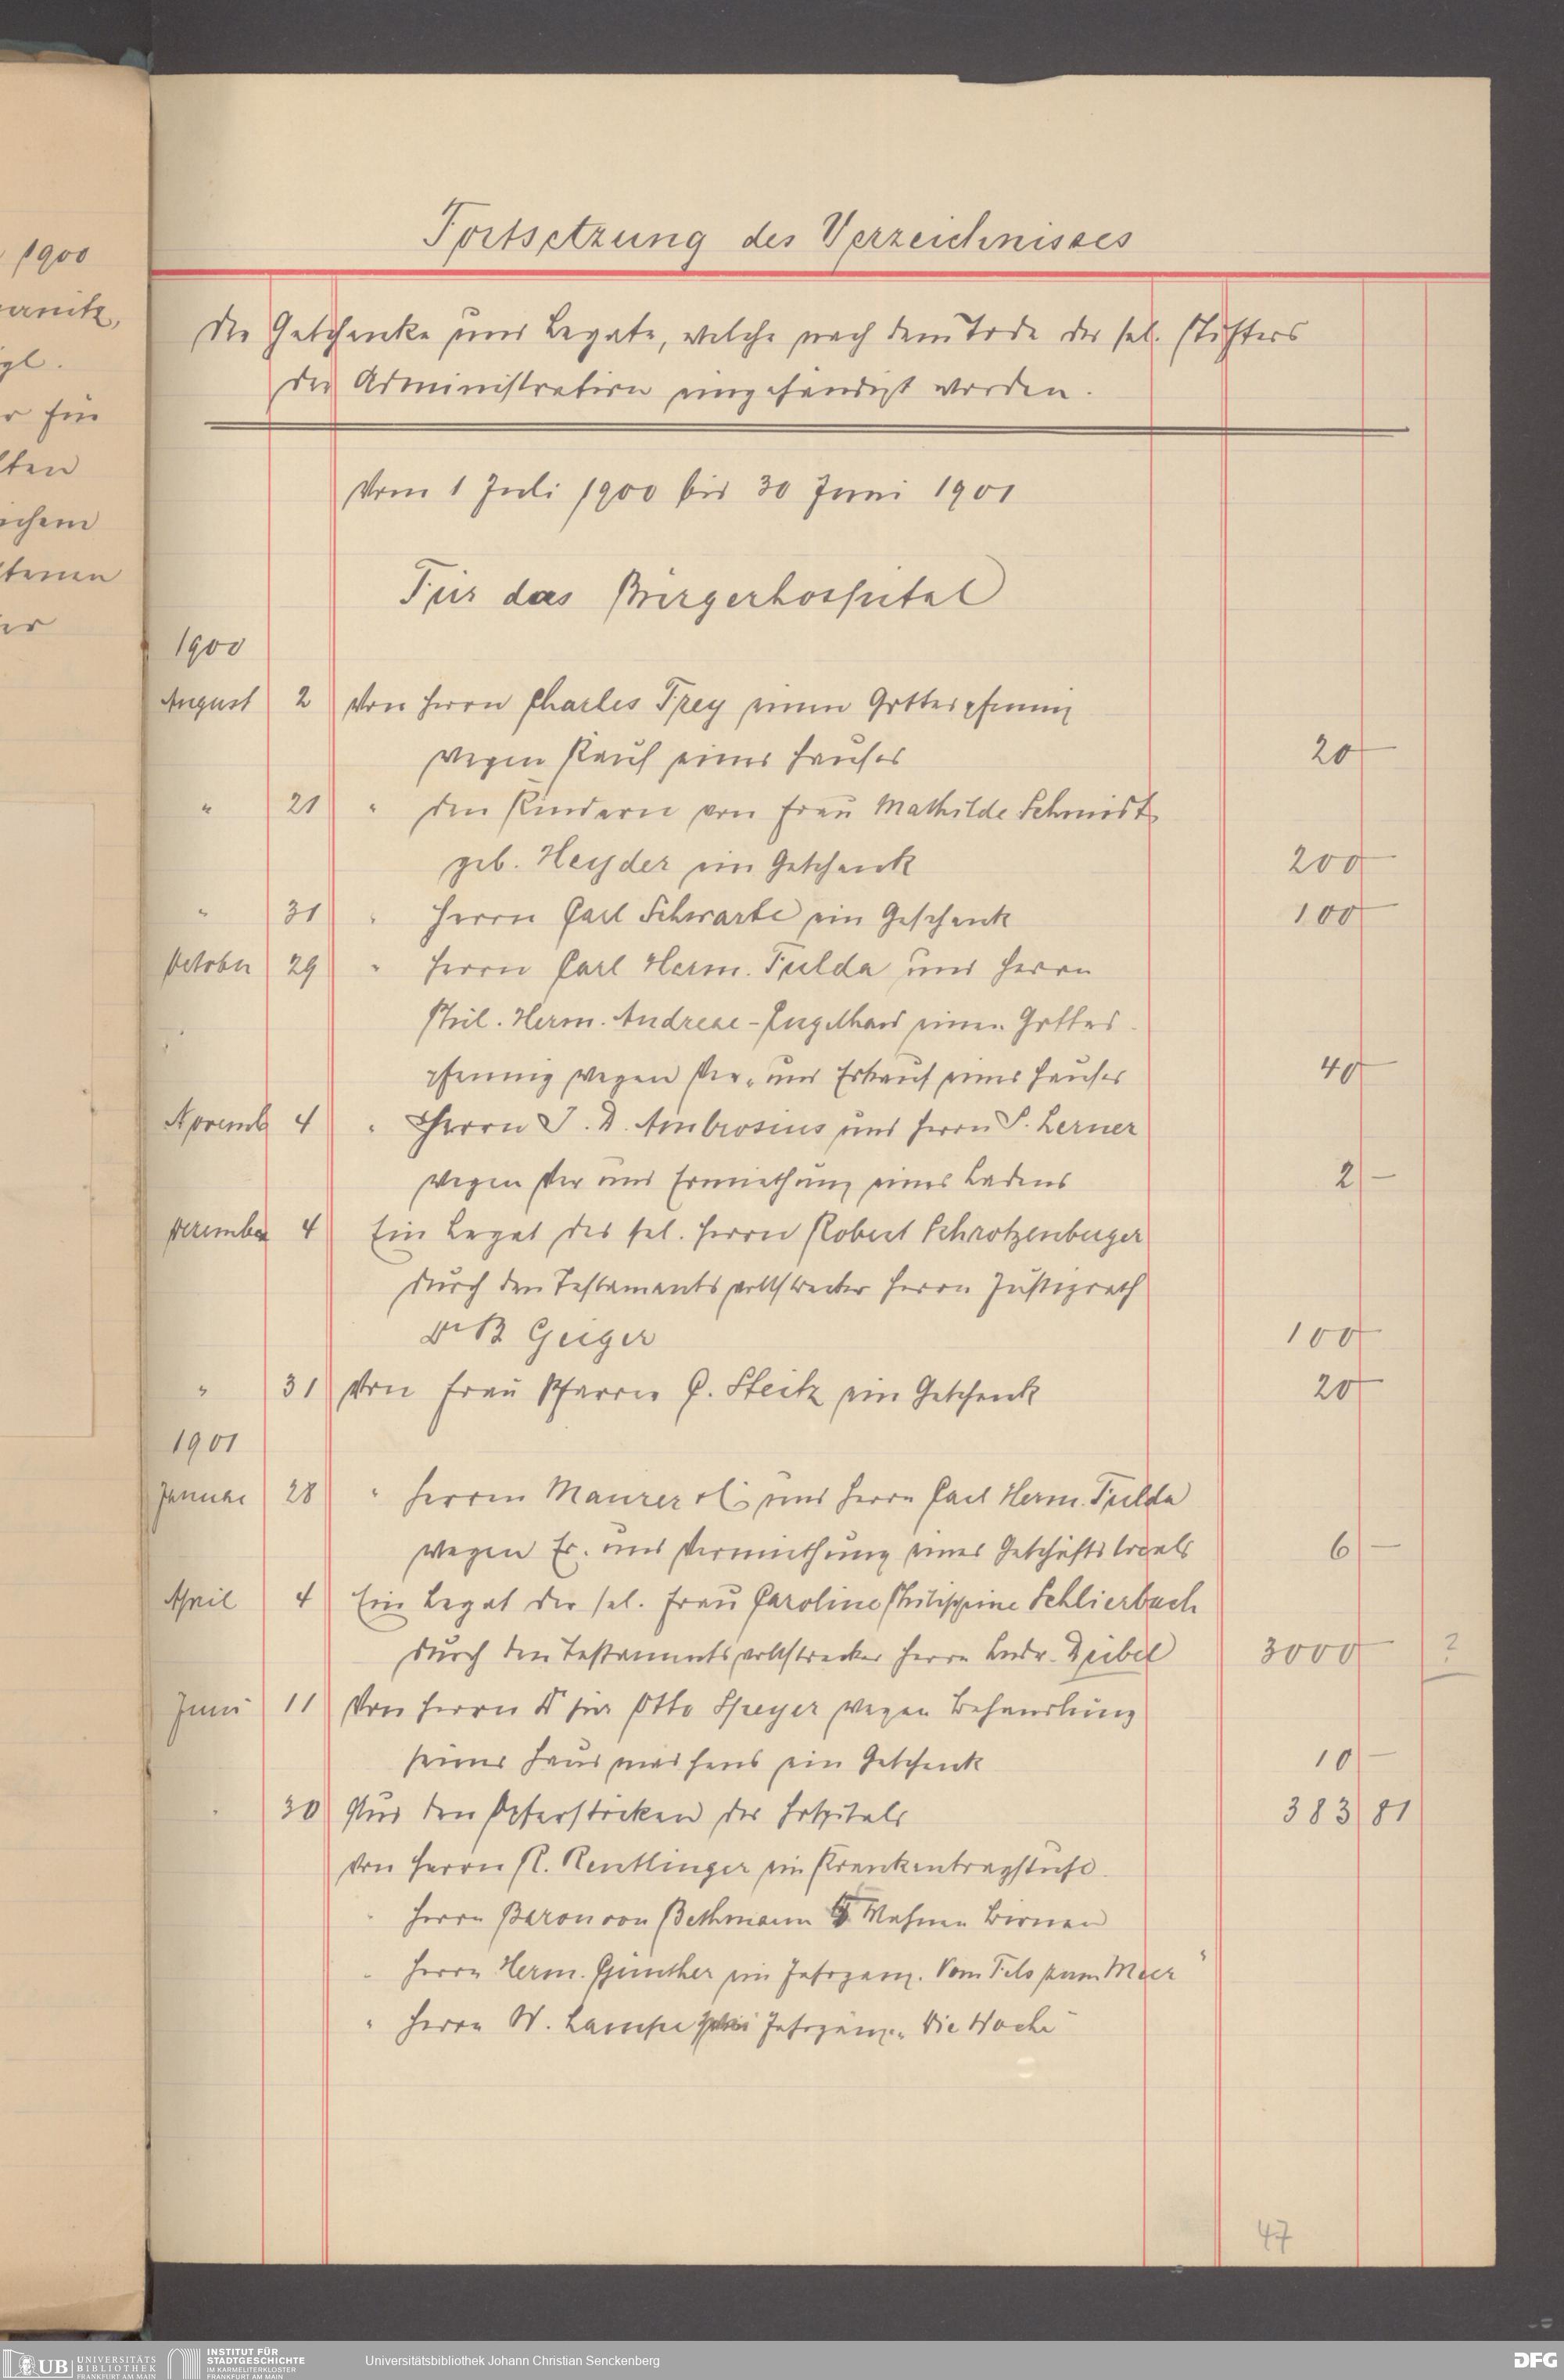 Fortsetzung des Verzeichnisses
der Geschenke und Legate, welche nach dem Tode des sel. Stifters
der Administration eingehändigt worden.
Vom 1 Juli 1900 bis 30 Juni 1901
Für das Bürgerhospital
1900
August 2 Von Herrn Charles Frey einen Gottespfennig
wegen Kauf eines Hauses 20 —
" 21 " den Kindern von Frau Mathilde Schmidt
geb. Heyder ein Geschenk 200 —
" 31 " Herrn Carl Schwarte ein Geschenk 100 —
October 29 " Herrn Carl Herm. Fulda und Herrn
Phil. Herm. Andreae-Engelhard einen Gottes-
pfennig wegen Ver- und Erkauf eines Hauses 40 —
Novemb 4 " Herrn J. D. Ambrosius und Herrn S. Lerner
wegen Ver und Ermiethung eines Ladens 2 —
December 4 Ein Legat des sel. Herrn Robert Schrotzenberger
durch den Testamentsvollstrecker Herrn Justizrath
Dr B Geiger 100 —
" 31 Von Frau Pfarrer C. Steitz ein Geschenk 20 —
1901
Januar 28 " Herren Maurer & Co und Herrn Carl Herm. Fulda
wegen Er- und Vermiethung eines Geschäftslocals 6 —
April 4 Ein Legat der sel. Frau Caroline Philippine Schlierbach
durch den Testamentsvollstrecker Herrn Andr. Deibel 3000 — ?
Juni 11 Von Herrn Dr jur Otto Speyer wegen Behandlung
seines Hausmädchens ein Geschenk 10 —
" 30 Aus den Opferstöcken des Hospitals 383 81
Von Herrn K. Reutlinger ein Krankentragstuhl.
" Herrn Baron von Bethmann Mahnen Birnen
" Herrn Herm. Günther ein Jahrgang "Vom Fels zum Meer"
" Herrn W. Lampe zwei Jahrgänge "Die Woche"
47
1900
UB UNIVERSITÄTS
BIBLIOTHEK
FRANKFURT AM MAIN
INSTITUT FÜR
STADTGESCHICHTE
IM KARMELITERKLOSTER
FRANKFURT AM MAIN
Universitätsbibliothek Johann Christian Senckenberg
DFG